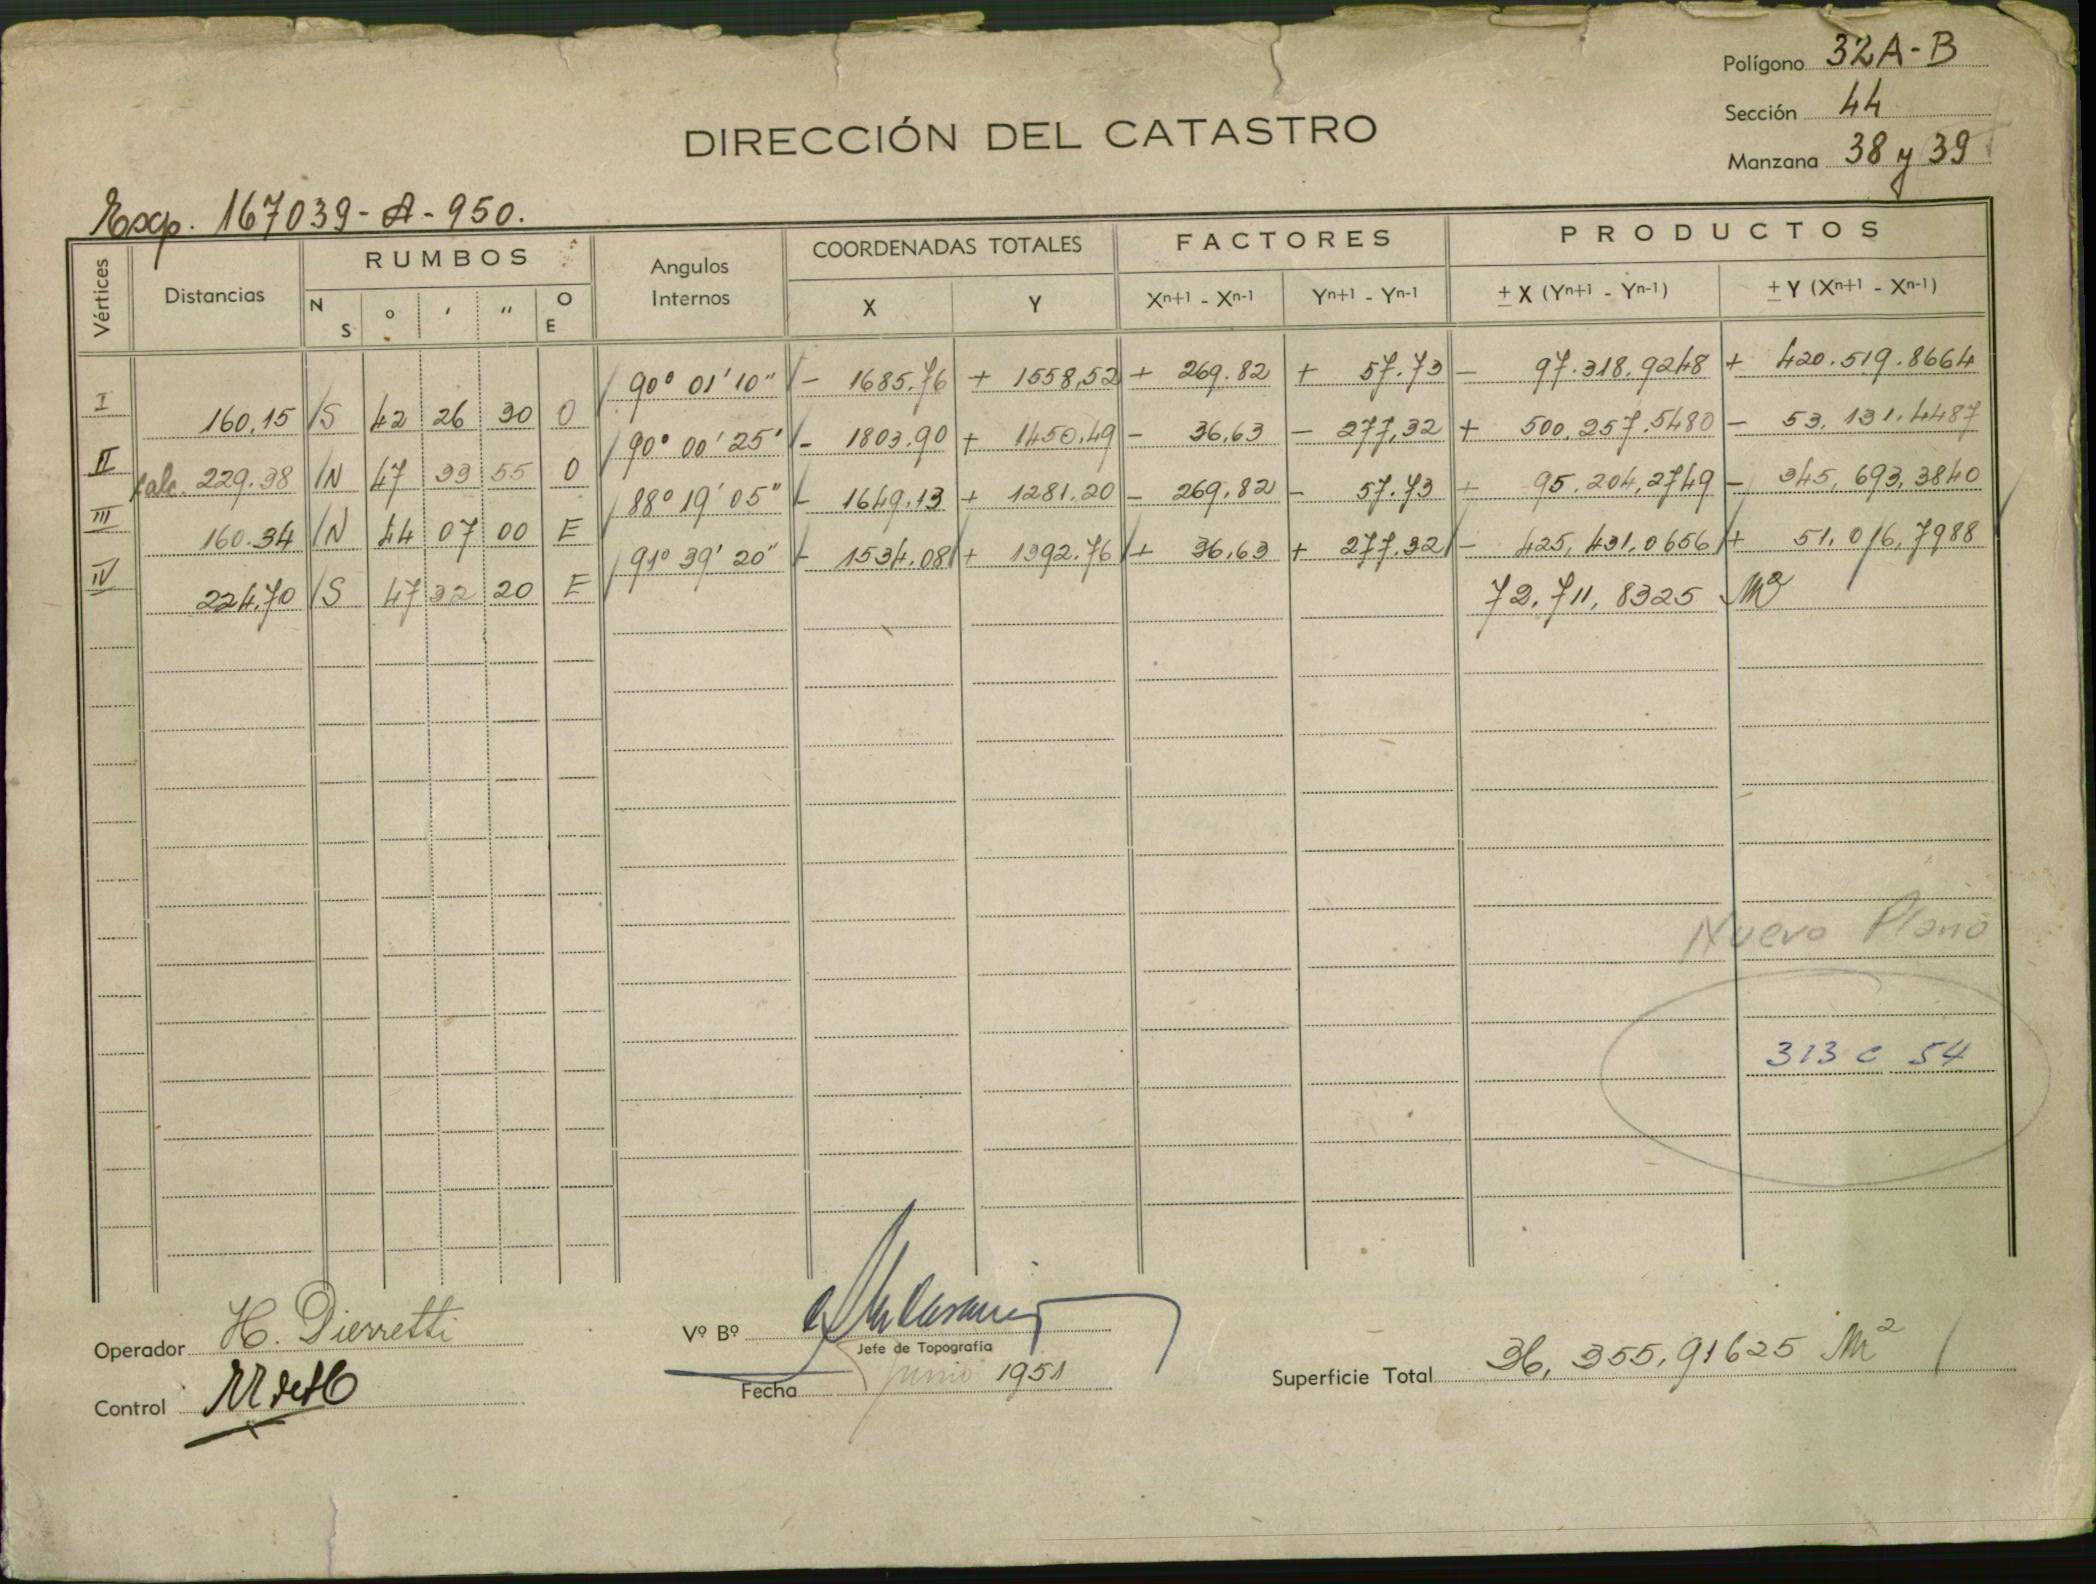 Polígono 32A-B
Sección 44
DIRECCIÓN DEL CATASTRO
Manzana 38 y 39
Exp. 167039-A-950.
Vértices Distancias RUMBOS Angulos Internos COORDENADAS TOTALES FACTORES PRODUCTOS
N S ° ' " O E X Y Xn+1 - Xn-1 Yn+1 - Yn-1 ± X (Yn+1 - Yn-1) ± Y (Xn+1 - Xn-1)
90° 01' 10" - 1685.76 + 1558,52 + 269.82 + 57.73 - 97.318.9248 + 420.519.8664
I 160.15 S 42 26 30 O
90° 00' 25" - 1803.90 + 1450.49 - 36,63 - 277,32 + 500.257.5480 - 53.131.4487
II calc. 229.38 N 47 33 55 O
88° 19' 05" - 1649.13 + 1281.20 - 269.82 - 57.73 + 95.204,2749 - 345,693,3840
III 160.34 N 44 07 00 E
91° 39' 20" - 1534.08 + 1392.76 + 36,63 + 277.32 - 425,431,0656 + 51.016,7988
IV 224.70 S 47 32 20 E
72.711,8325 M²
Nuevo Plano
313 C 54
Operador H. Pierretti
Vº Bº
Jefe de Topografía
Superficie Total 36,355,91625 M²
Fecha Junio 1951
Control